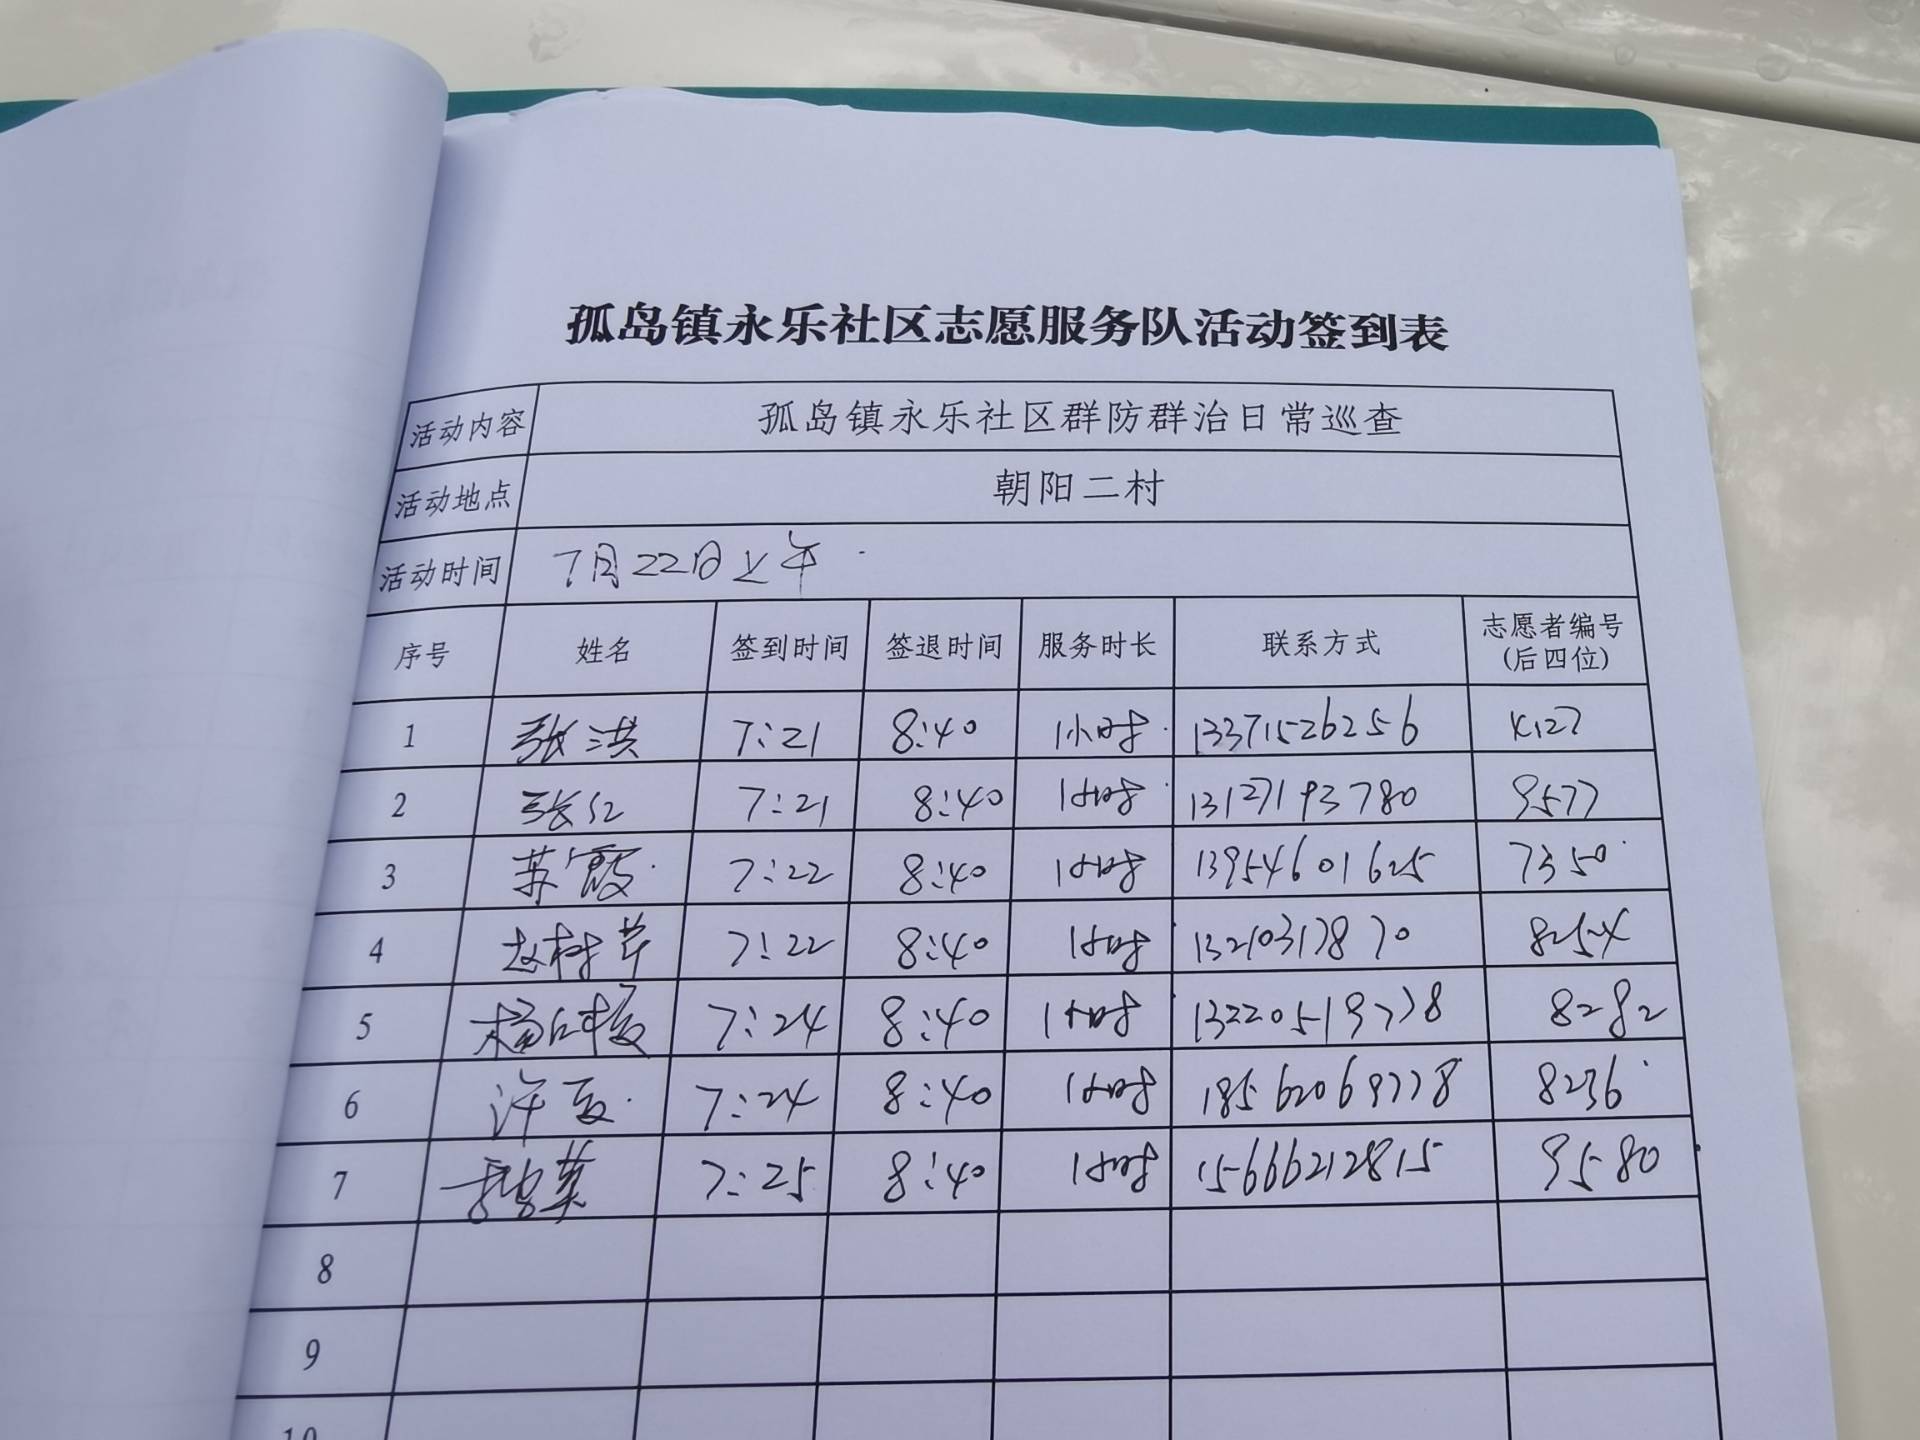 孤岛镇永乐社区志愿服务队活动签到表
活动内容 孤岛镇永乐社区群防群治日常巡查
活动地点 朝阳二村
活动时间 7月22日上午
序号 姓名 签到时间 签退时间 服务时长 联系方式 志愿者编号(后四位)
1 张洪 7:21 8:40 1小时 13371526256
2 张红 7:21 8:40 1小时 13127193780 9577
3 苏霞 7:22 8:40 1小时 13954601625 7350
4 赵树芹 7:22 8:40 1小时 13210317870 8254
5 7:24 8:40 1小时 13220519778 8282
6 许霞 7:24 8:40 1小时 18562069778 8236
7 7:25 8:40 1小时 15666212815 9580
8
9
10